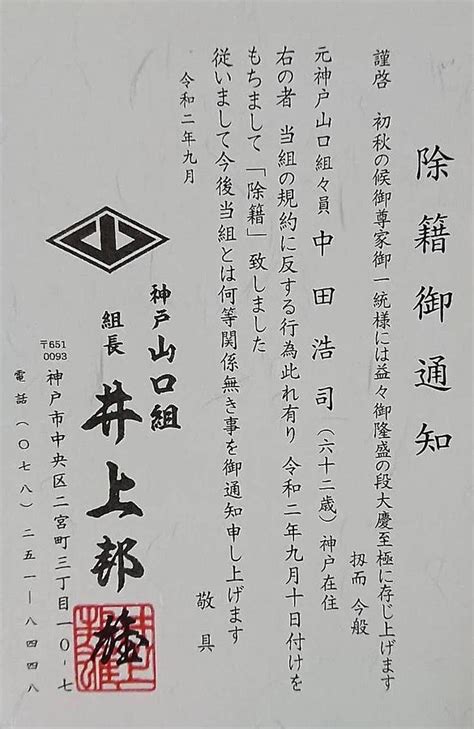 除籍御通知
謹啓 初秋の候御尊家御一統様には益々御隆盛の段大慶至極に存じ上げます
扨而 今般
元神戸山口組々員 中田浩司(六十二歳)神戸在住
右の者 当組の規約に反する行為此れ有り 令和二年九月十日付けを
もちまして「除籍」致しました
従いまして今後当組とは何等関係無き事を御通知申し上げます
敬具
令和二年九月
神戸山口組
組長 井上邦雄
〒651
0093
神戸市中央区二宮町三丁目一〇-七
電話(〇七八)二五一-八四四八